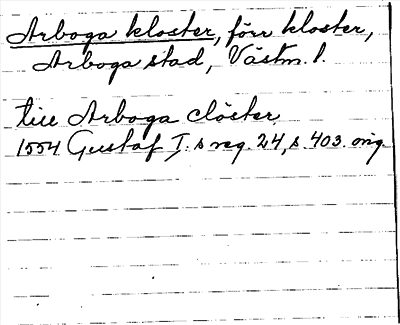 Arboga kloster, förr kloster,
Arboga stad, Västm. l.
till Arboga clöster
1554 Gustaf I.s reg. 24, s. 403. orig.